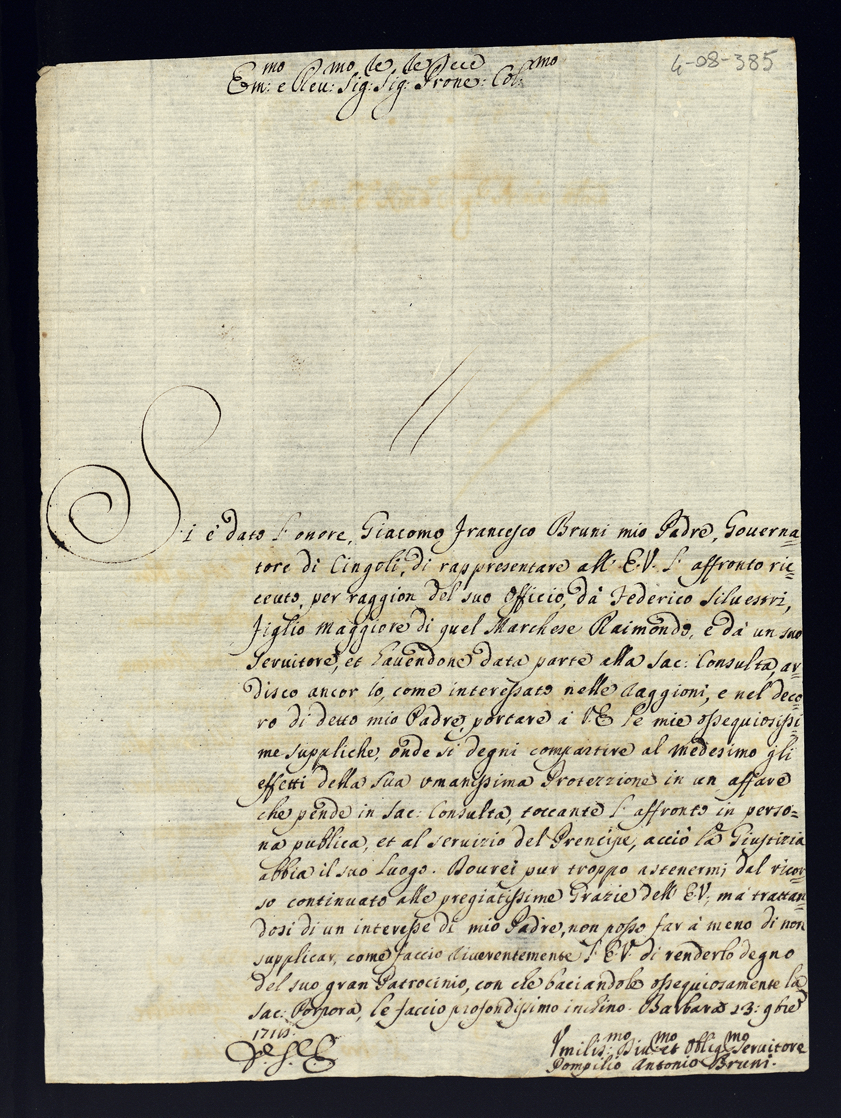 4-08-385
Em:mo e Reu:mo Sig:re Sig:re Prone: Col:mo
Si é dato l'onore, Giacomo Francesco Bruni mio Padre, Governa=
tore di Cingoli, di rappresentare all' E.V. l'affronto ric=
ceuto, per raggion del suo Officio, dà Federico Siluestri,
figlio maggiore di quel Marchese Raimondo, e dà un suo
servitore, et hauendone data parte alla Sac: Consulta, ar=
disco ancor Io, come interessato nelle raggioni, e nel deco=
ro di detto mio Padre, portare à V.E. le mie ossequiosissi=
me suppliche, onde si degni compartire al medesimo gli
effetti della sua vmanissima Protezzione in un affare
che pende in Sac: Consulta, toccante l'affronto in perso=
na publica, et al servizio del Prencipe, acciò la Giustizia
abbia il suo Luogo. Dourei pur troppo astenermi dal ricor=
so continuato alle pregiatissime Grazie dell' E.V., mà trattan=
dosi di un interesse di mio Padre, non posso far à meno di non
supplicar, come faccio riuerentemente l'E.V. di renderlo degno
del suo gran Patrocinio, con che baciandole ossequiosamente la
Sac: Porpora, le faccio profondissimo inchino. Barbara 23: 9bre
Vmilis:mo Diu:mo et Oblig:mo Seruitore
Pompilio Antonio Bruni.